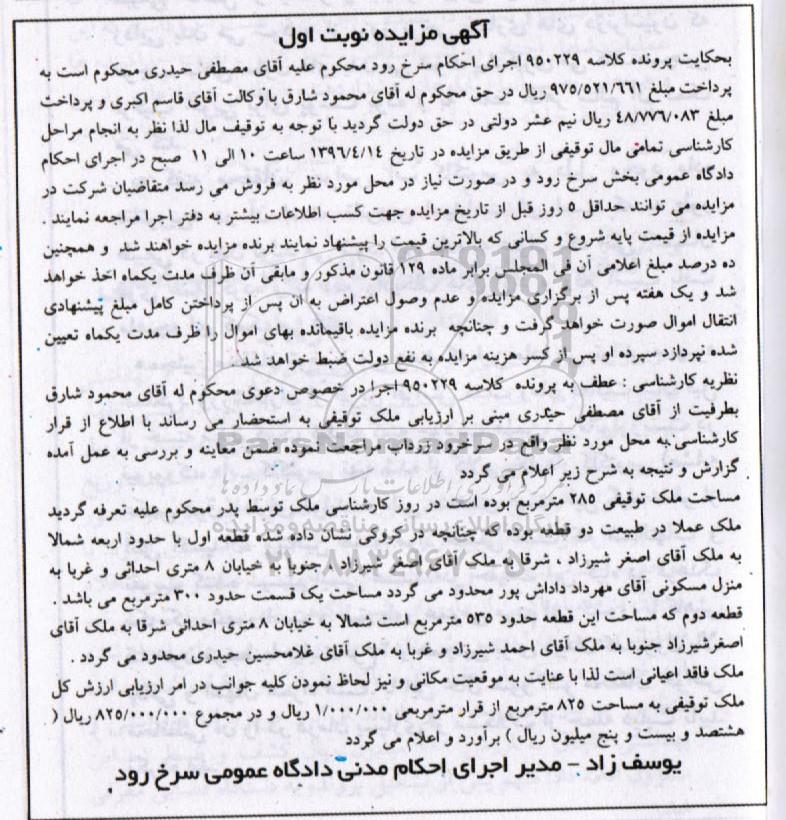 آگهی مزایده نوبت اول
بحکایت پرونده کلاسه ۹۵۰۲۲۹ اجرای احکام سرخ رود محکوم علیه آقای مصطفی حیدری محکوم است به
پرداخت مبلغ ۹۷۵/۵۲۱/۶۶۱ ریال در حق محکوم له آقای محمود شارق با وکالت آقای قاسم اکبری و پرداخت
مبلغ ۴۸/۷۷۶/۰۸۳ ریال نیم عشر دولتی در حق دولت گردید با توجه به توقیف مال لذا نظر به انجام مراحل
کارشناسی تمامی مال توقیفی از طریق مزایده در تاریخ ۱۳۹۶/۴/۱۴ ساعت ۱۰ الی ۱۱ صبح در اجرای احکام
دادگاه عمومی بخش سرخ رود و در صورت نیاز در محل مورد نظر به فروش می رسد متقاضیان شرکت در
مزایده می توانند حداقل ۵ روز قبل از تاریخ مزایده جهت کسب اطلاعات بیشتر به دفتر اجرا مراجعه نمایند .
مزایده از قیمت پایه شروع و کسانی که بالاترین قیمت را پیشنهاد نمایند برنده مزایده خواهند شد و همچنین
ده درصد مبلغ اعلامی آن فی المجلس برابر ماده ۱۲۹ قانون مذکور و مابقی آن ظرف مدت یکماه اخذ خواهد
شد و یک هفته پس از برگزاری مزایده و عدم وصول اعتراض به ان پس از پرداختن کامل مبلغ پیشنهادی
انتقال اموال صورت خواهد گرفت و چنانچه برنده مزایده باقیمانده بهای اموال را ظرف مدت یکماه تعیین
شده نپردازد سپرده او پس از کسر هزینه مزایده به نفع دولت ضبط خواهد شد .
نظریه کارشناسی : عطف به پرونده کلاسه ۹۵۰۲۲۹ اجرا در خصوص دعوی محکوم له آقای محمود شارق
بطرفیت از آقای مصطفی حیدری مبنی بر ارزیابی ملک توقیفی به استحضار می رساند با اطلاع از قرار
کارشناسی به محل مورد نظر واقع در سرخرود زرداب مراجعت نموده ضمن معاینه و بررسی به عمل آمده
گزارش و نتیجه به شرح زیر اعلام می گردد
مساحت ملک توقیفی ۲۸۵ مترمربع بوده است در روز کارشناسی ملک توسط پدر محکوم علیه تعرفه گردید
ملک عملا در طبیعت دو قطعه بوده که چنانچه در کروکی نشان داده شده قطعه اول با حدود اربعه شمالا
به ملک آقای اصغر شیرزاد ، شرقا به ملک آقای اصغر شیرزاد ، جنوبا به خیابان ۸ متری احداثی و غربا به
منزل مسکونی آقای مهرداد داداش پور محدود می گردد مساحت یک قسمت حدود ۳۰۰ مترمربع می باشد .
قطعه دوم که مساحت این قطعه حدود ۵۳۵ مترمربع است شمالا به خیابان ۸ متری احداثی شرقا به ملک آقای
اصغرشیرزاد جنوبا به ملک آقای احمد شیرزاد و غربا به ملک آقای غلامحسین حیدری محدود می گردد .
ملک فاقد اعیانی است لذا با عنایت به موقعیت مکانی و نیز لحاظ نمودن کلیه جوانب در امر ارزیابی ارزش کل
ملک توقیفی به مساحت ۸۲۵ مترمربع از قرار مترمربعی ۱/۰۰۰/۰۰۰ ریال و در مجموع ۸۲۵/۰۰۰/۰۰۰ ریال (
هشتصد و بیست و پنج میلیون ریال ) برآورد و اعلام می گردد
یوسف زاد – مدیر اجرای احکام مدنی دادگاه عمومی سرخ رود
ParsNamadData
پایگاه اطلاع رسانی مناقصه و مزایده
۰۲۱-۸۸۳۴۹۶۷۰-۵